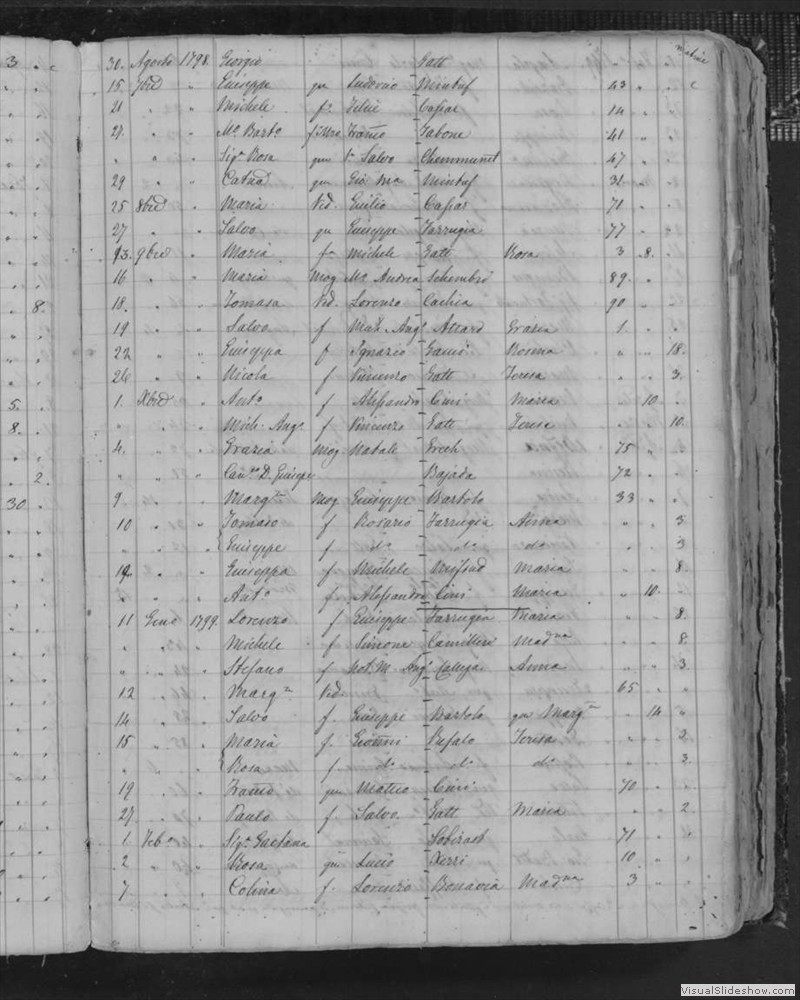 3
matine
30. Agosto 1798. Giorgio Gatt
15. 7bre " Giuseppe qm Ludovico Mintuf 43
21 " " Michele f. Felice Caspar 14
27. " " Mo. Barto. Tabone 41
" " " Siga. Rosa qm Salvo 47
29 " " Catna. qm Gio. Ma Mintuf 31
25 8bre " Maria Ved. Emilio Caspar 71
27 " " Salvo qm Giuseppe Farrugia 77
13. 9bre " Maria f. Michele Gatt Rosa 3 8.
16 " " Maria Mog Mo. Andrea Schembri 89.
8. 18. " " Tomasa Ved. Lorenzo Cachia 90
19 " " Salvo f Angо. Attard Grazia 1.
22 " " Giuseppa f Ignazio Gauci Rosina " " 18.
26 " " Nicola f Vincenzo Gatt Teresa " " 3.
5. 1. Xbre " Anto. f Alessandro Cini Maria " 10.
8. " " " Mich. Ango. f Vincenzo Gatt Teresa " " 10.
4. " " Grazia Mog Natale Grech 75
2. " " " Cano. D. Giuseppe Bajada 72
30. 9 " " Margta. Mog Giuseppe Bartolo 33
10 " " Tomaso f Rosario Farrugia Anna " " 3
" " " Giuseppe f do. do. do. " " 3
" " Giuseppa f Michele Mifsud Maria " " 8.
" " " Anto. f. Alessandro Cini Maria " 10.
11 Geno 1799. Lorenzo f Giuseppe Farrugia Maria " " 8.
" " " Michele f Simone Camilleri Madna " " 8.
" " " Stefano f Not. M. Ango. Calleja Anna " " 3
12 " " Marga. Ved. 65
14 " " Salvo f. Giuseppe Bartolo qm Margta. " 14 "
15 " " Maria f. Gioanni Pufalo Teresa " " 2.
" " " Rosa f do. do. do. " " 3.
19 " " qm Matteo Cini 70
27 " " Paulo f. Salvo Gatt Maria " " 2
1. Febo " Siga. Gaetana 71
2 " " Rosa qm Lucio Xerri 10
7 " " Colina f. Lorenzo Bonavia Madna 3
VisualSlideshow.com